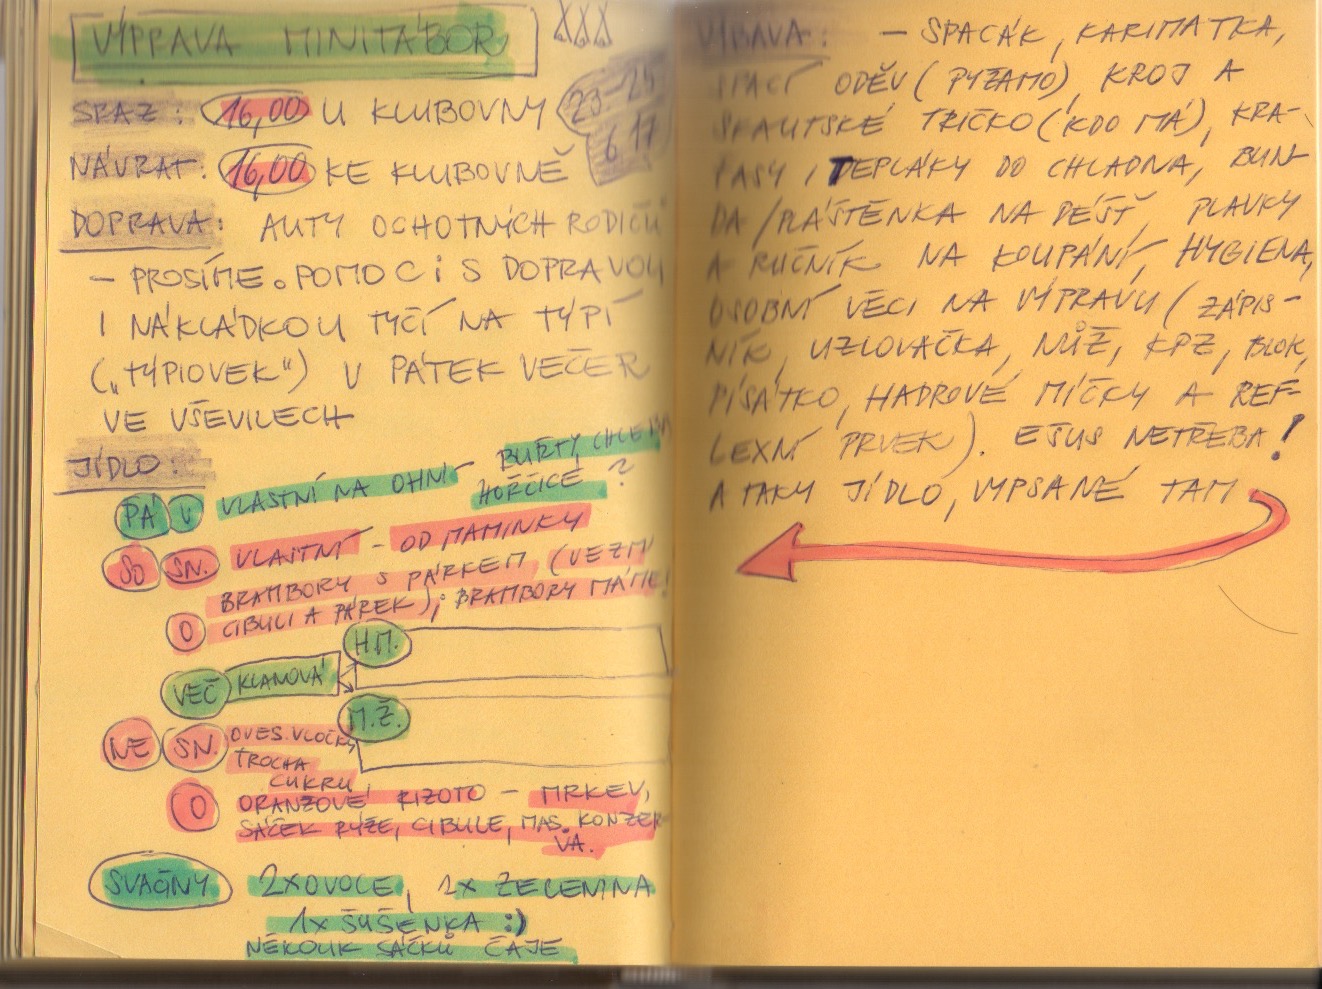 VÝPRAVA MINITÁBOR
SRAZ: 16,00 U KLUBOVNY
23-25
6 17
NÁVRAT: 16,00 KE KLUBOVNĚ
DOPRAVA: AUTY OCHOTNÝCH RODIČŮ
- PROSÍME. POMOCI S DOPRAVOU
I NÁKLÁDKOU TYČÍ NA TÝPÍ
(„TÝPIOVEK“) V PÁTEK VEČER
VE VŠEVILECH
JÍDLO:
PÁ V VLASTNÍ NA OHNÍ BUŘTY, CHLEBA
HOŘČICE ?
SO SN. VLASTNÍ - OD MAMINKY
O BRAMBORY S PÁRKEM, (VEZMI
CIBULI A PÁREK); BRAMBORY MÁME!
VEČ KLANOVÁ H.M.
M.Ž.
NE SN. OVES. VLOČKY,
TROCHA
CUKRU
O ORANŽOVÉ RIZOTO - MRKEV,
SÁČEK RÝŽE, CIBULE, MAS. KONZER-
VA.
SVAČINY 2XOVOCE, 1X ZELENINA
1X SUŠENKA :)
NĚKOLIK SÁČKŮ ČAJE
VÝBAVA: - SPACÁK, KARIMATKA,
SPACÍ ODĚV (PYŽAMO), KROJ A
SKAUTSKÉ TRIČKO (KDO MÁ), KRA-
ŤASY, TEPLÁKY DO CHLADNA, BUN-
DA/PLÁŠTĚNKA NA DÉŠŤ, PLAVKY
A RUČNÍK NA KOUPÁNÍ, HYGIENA,
OSOBNÍ VĚCI NA VÝPRAVU (ZÁPIS-
NÍK, UZLOVAČKA, NŮŽ, KPZ, BLOK,
PÍSÁTKO, HADROVÉ MÍČKY A REF-
LEXNÍ PRVEK). EŠUS NETŘEBA!
A TAKY JÍDLO, VYPSANÉ TAM